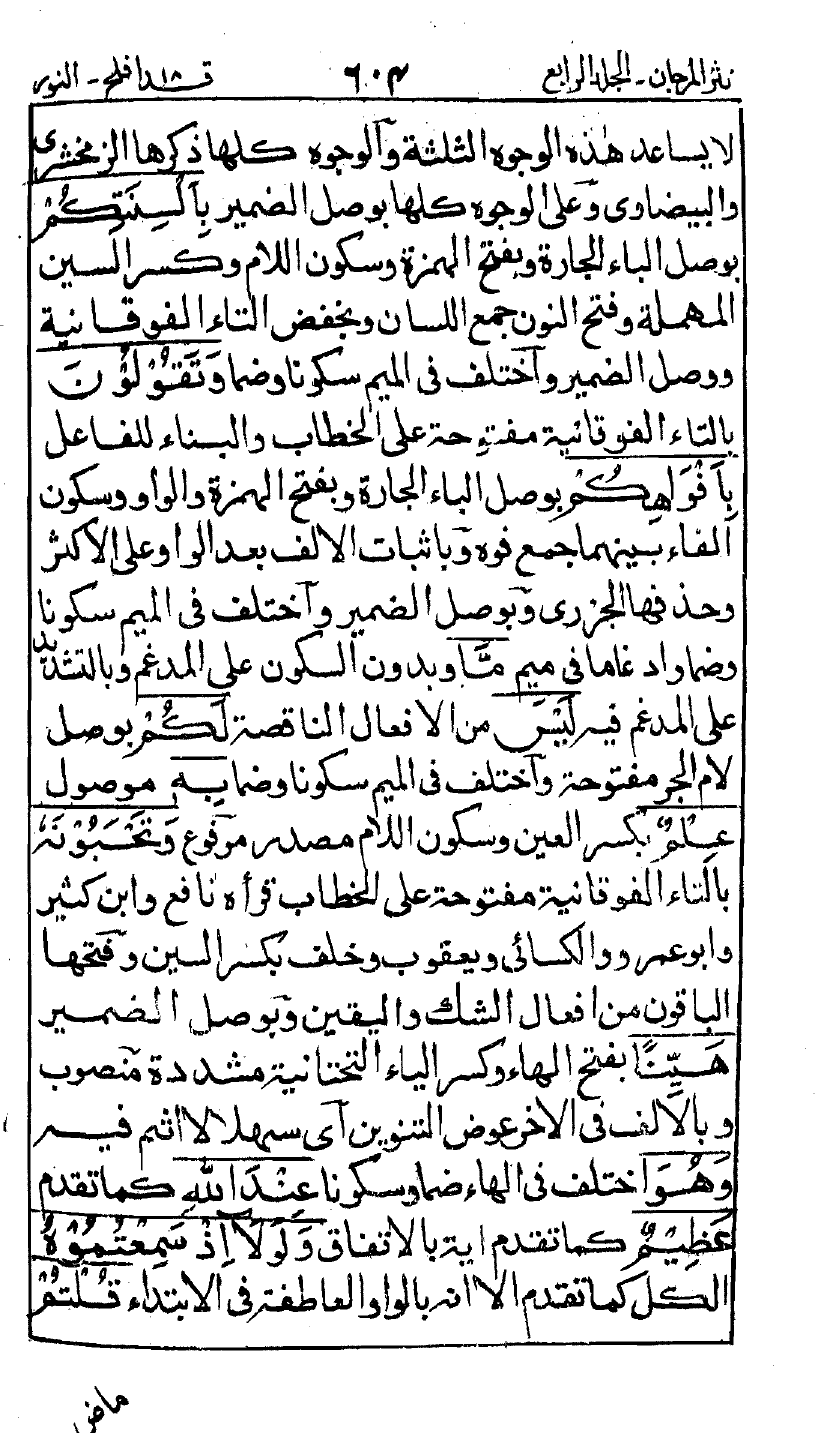 نثر المرجان - الجلد الرابع ٦٠٣ قد افلح ١٨ - النور
لا يساعد هذه الوجوه الثلثة والوجوه كلها ذكرها الزمخشرى
والبيضاوى وعلى الوجوه كلها بوصل الضمير بِاَلْسِنَتِكُمْ
بوصل الباء الجارة وبفتح الهمزة وسكون اللام وكسر السين
المهملة وفتح النون جمع اللسان وبخفض التاء الفوقانية
ووصل الضمير واختلف فى الميم سكونا وضما وَتَقُوْلُوْنَ
بالتاء الفوقانية مفتوحة على الخطاب والبناء للفاعل
بِاَفْوَاهِكُمْ بوصل الباء الجارة وبفتح الهمزة والواو وسكون
الفاء بينهما جمع فوه وباثبات الالف بعد الواو على الاكثر
وحذفها الجزرى وبوصل الضمير واختلف فى الميم سكونا
وضما وادغاما فى ميم مَّا وبدون السكون على المدغم وبالتشديد
على المدغم فيه لَيْسَ من الافعال الناقصة لَكُمْ بوصل
لام الجر مفتوحة واختلف فى الميم سكونا وضما بِهٖ موصول
عِلْمٌ بكسر العين وسكون اللام مصدر مرفوع وَتَحْسَبُوْنَهٗ
بالتاء الفوقانية مفتوحة على الخطاب قرأه نافع وابن كثير
وابو عمرو والكسائى ويعقوب وخلف بكسر السين وفتحها
الباقون من افعال الشك واليقين وبوصل الضمير
هَيِّنًا بفتح الهاء وكسر الياء التحتانية مشددة منصوب
وبالالف فى الاخر عوض التنوين اى سهلا لا اثم فيه
وَهُوَ اختلف فى الهاء ضما وسكونا عِنْدَ اللهِ كما تقدم
عَظِيْمٌ كما تقدم اية بالاتفاق وَلَوْلَا اِذْ سَمِعْتُمُوْهُ
الكل كما تقدم الا انه بالواو العاطفة فى الابتداء قُلْتُمْ
ماض